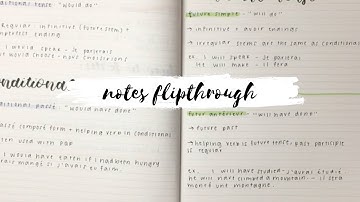 conditional tense - "would do"
Regular : infinitive (future stem) +
imperfect ending
I would speak - Je parlerais
conditional
conditional passé - "would have done"
helping verb in conditional
often used with PQP
I would have eaten if i hadn't been hungry
notes flipthrough
future simple - "will do"
→ infinitive + avoir endings
→ irregular stems are the same as conditional
ex. I will speak - Je parlerai
He will have - il aura
futur antérieur - "will have done"
→ future past
→ helping verb is future tense, past participle
is regular
ex. I will have studied - j'aurai étudié
he will have climbed a mountain - il sera
monté une montagne.